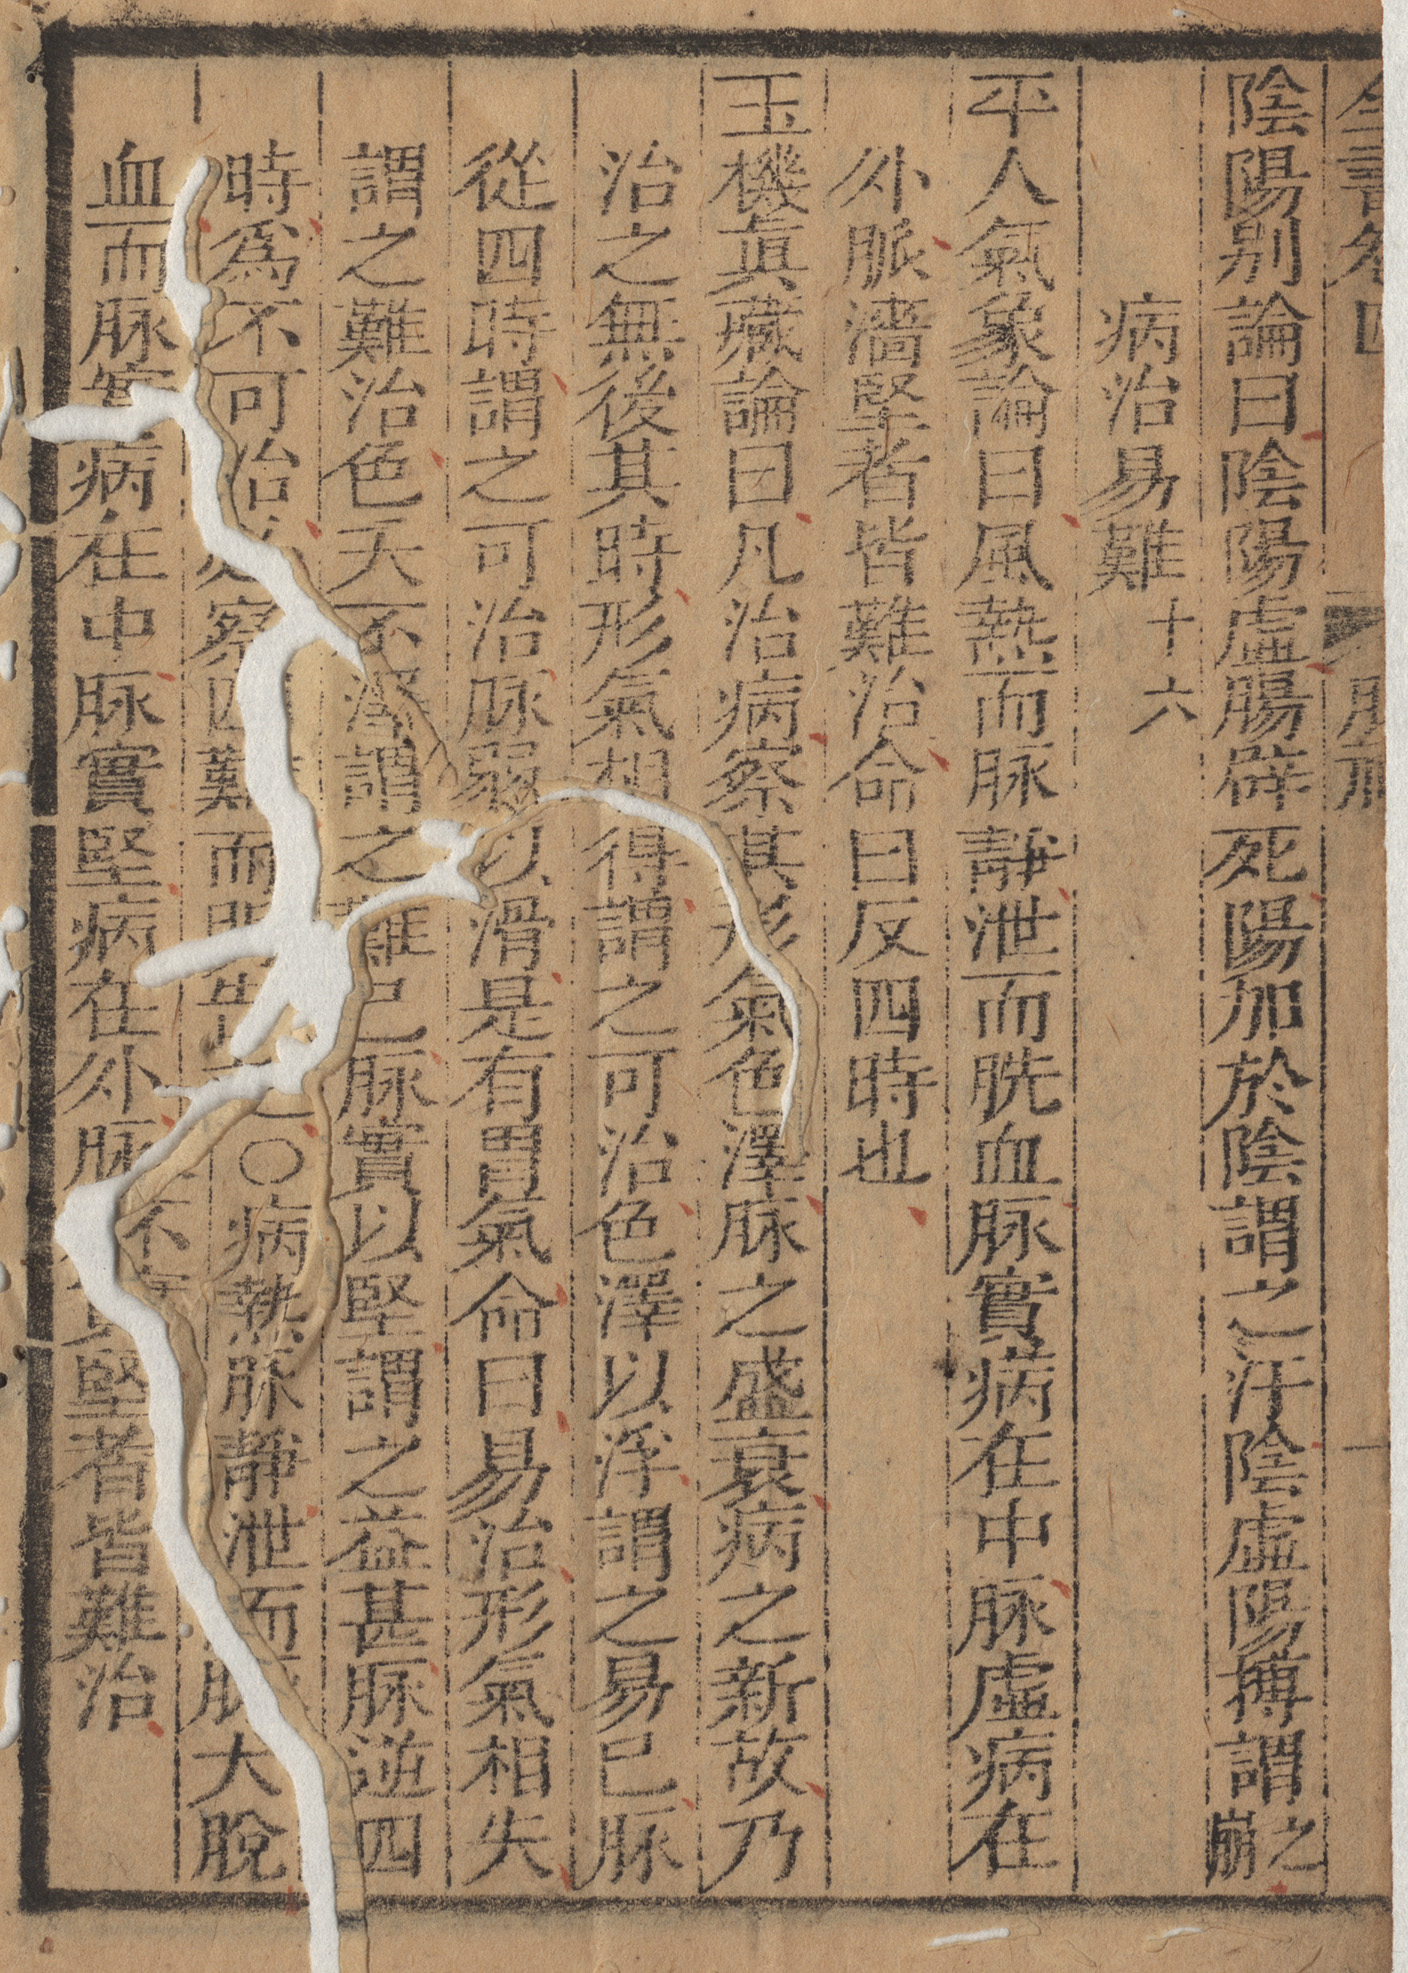 陰陽别論曰陰陽虛腸辟死陽加於陰謂之汗陰虛陽搏謂之崩
病治易難十六
平人氣象論曰風熱而脉靜泄而脱血脉實病在中脉虛病在
外脈濇堅者皆難治命曰反四時也
玉機眞藏論曰凡治病察其形氣色澤脉之盛衰病之新故乃
治之無後其時形氣相得謂之可治色澤以浮謂之易已脉
從四時謂之可治脉弱以滑是有胃氣命曰易治形氣相失
謂之難治色夭不澤謂之難已脉實以堅謂之益甚脉逆四
時爲不可治必察四難而明告之○病熱脉靜泄而脉大脫
血而脉實病在中脉實堅病在外脉不實堅者皆難治